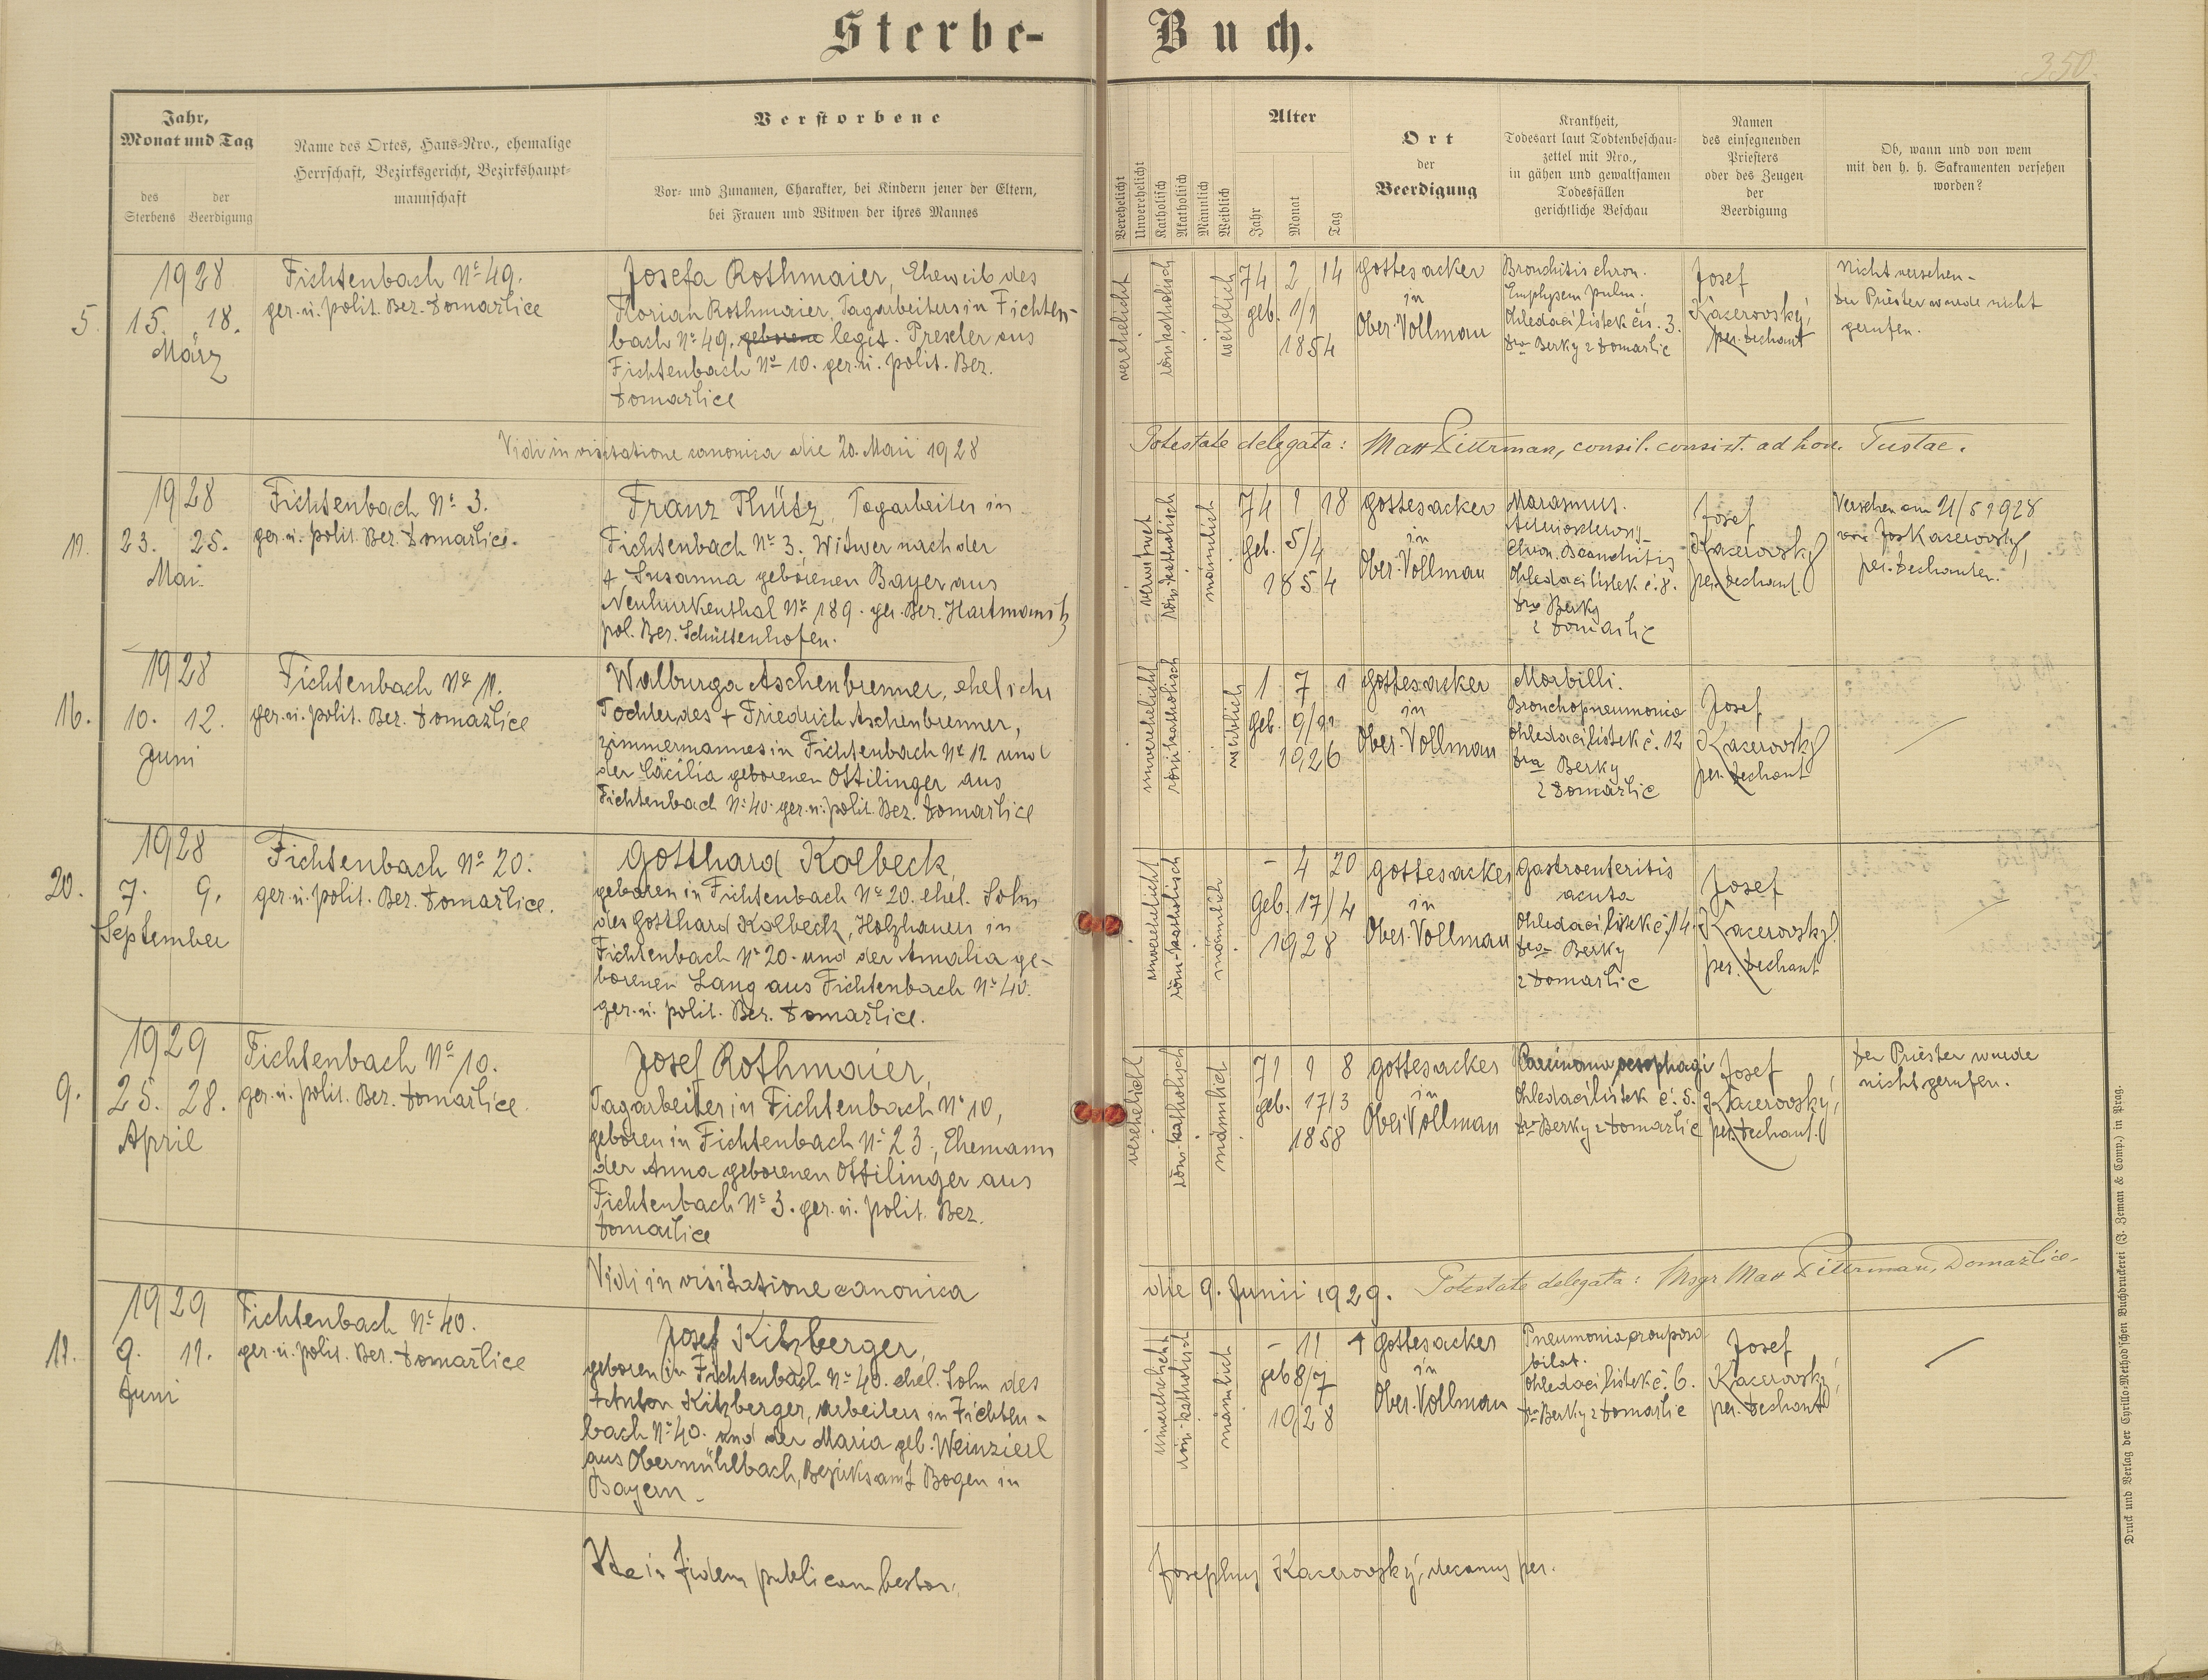 Sterbe-Buch.
350.
Jahr,
Monat und Tag
des
Sterbens
der
Beerdigung
Name des Ortes, Haus-Nro., ehemalige
Herrschaft, Bezirksgericht, Bezirkshaupt-
mannschaft
Verstorbene
Vor- und Zunamen, Charakter, bei Kindern jener der Eltern,
bei Frauen und Witwen der ihres Mannes
Verehelicht
Unverehelicht
Katholisch
Akatholisch
Männlich
Weiblich
Alter
Jahr
Monat
Tag
Ort
der
Beerdigung
Krankheit,
Todesart laut Todtenbeschau-
zettel mit Nro.,
in gähen und gewaltsamen
Todesfällen
gerichtliche Beschau
Namen
des einsegnenden
Priesters
oder des Zeugen
der
Beerdigung
Ob, wann und von wem
mit den h. h. Sakramenten versehen
worden?
5.
1928
15. 18.
März
Fichtenbach No 49.
ger. u. polit. Bez. Domažlice
Josefa Rothmaier, Eheweib des
Florian Rothmaier, Tagarbeiters in Fichten-
bach No 49. geborene legit. Preseler aus
Fichtenbach No 10. ger. u. polit. Bez.
Domažlice
verehelicht
röm. katholisch
weiblich
74 2 14
geb. 1/1
1854
Gottesacker
in
Ober-Vollmau
Bronchitis chron.
Emphysem pulm.
Ohledací lístek čís. 3.
Dra Berky z Domažlic
Josef
Kacerovský,
per. Dechant
Nicht versehen-
Der Priester wurde nicht
gerufen.
Vidi in visitatione canonica die 20. Maii 1928
Potestate delegata: Matt Dittrman, consil. consist. ad hon. Tustae.
11.
1928
23. 25.
Mai.
Fichtenbach No 3.
ger. u. polit. Bez. Domažlice.
Franz Thütz, Tagarbeiter in
Fichtenbach No 3. Witwer nach der
+ Susanna geborenen Bayer aus
Neuhurkenthal No 189. ger. Bez. Hartmanitz
pol. Bez. Schüttenhofen.
verwitwet
röm. katholisch
männlich
74 1 18
geb. 5/4
1854
Gottesacker
in
Ober-Vollmau
Marasmus.
Chron. Bronchitis
Ohledací lístek č. 8.
Dra Berky
z Domažlic
Josef
Kacerovský
per. Dechant.
Versehen am 21/5 1928
von Jos Kacerovský,
per. Dechanten.
16.
1928
10. 12.
Juni
Fichtenbach No 11.
ger. u. polit. Bez. Domažlice
Walburga Aschenbrenner, eheliche
Tochter des + Friedrich Aschenbrenner,
Zimmermannes in Fichtenbach No 12 und
der Cäcilia geborenen Ottilinger aus
Fichtenbach No 40. ger. u. polit. Bez. Domažlice
unverehelicht
röm. katholisch
weiblich
1 7 1
geb. 9/11
1926
Gottesacker
in
Ober-Vollmau
Morbilli.
Bronchopneumonia
Ohledací lístek č. 12
Dra Berky
z Domažlic
Josef
Kacerovský
per. Dechant
20.
1928
7. 9.
September
Fichtenbach No 20.
ger. u. polit. Bez. Domažlice.
Gotthard Kolbeck,
geboren in Fichtenbach No 20. ehel. Sohn
des Gotthard Kolbeck, Holzhauers in
Fichtenbach No 20. und der Amalia ge-
borenen Lang aus Fichtenbach No 40.
ger. u. polit. Bez. Domažlice.
unverehelicht
röm-katholisch
männlich
- 4 20
Geb. 17/4
1928
Gottesacker
in
Ober-Vollmau
Gastroenteritis
acuta
Ohledací lístek č. 14.
Dra Berky
z Domažlic
Josef
Kacerovský
per. Dechant
9.
1929
25. 28.
April
Fichtenbach No 10.
ger. u. polit. Bez. Domažlice
Josef Rothmaier,
Tagarbeiter in Fichtenbach No 10,
geboren in Fichtenbach No 23, Ehemann
der Anna geborenen Ottilinger aus
Fichtenbach No 3. ger. u. polit. Bez.
Domažlice
verehelicht
röm.-katholisch
männlich
71 1 8
geb. 17/3
1858
Gottesacker
in
Ober-Vollmau
Carcinoma oesophagi
Ohledací lístek č. 5.
Dra Berky z Domažlic
Josef
Kacerovský,
per. Dechant.
Der Priester wurde
nicht gerufen.
Vidi in visitatione canonica die 9. Junii 1929. Potestate delegata: Msgr Matt Dittrman, Domažlice.
11.
1929
9. 11.
Juni
Fichtenbach No 40.
ger. u. polit. Bez. Domažlice
Josef Kitzberger,
geboren in Fichtenbach No 40. ehel. Sohn des
Anton Kitzberger, Arbeiters in Fichten-
bach No 40. und der Maria geb. Weinzierl
aus Obermühlbach, Bezirksamt Bogen in
Bayern.
unverehelicht
röm. katholisch
männlich
- 11 1
geb 8/7
1928
Gottesacker
in
Ober-Vollmau
Pneumonia crouposa
bilat.
Ohledací lístek č. 6.
Dra Berky z Domažlic
Josef
Kacerovský,
per. Dechant
in fidem publicam testor. Josephus Kacerovský, decanus per.
Druck und Verlag der Cyrillo-Method'schen Buchdruckerei (J. Zeman & Comp.) in Prag.